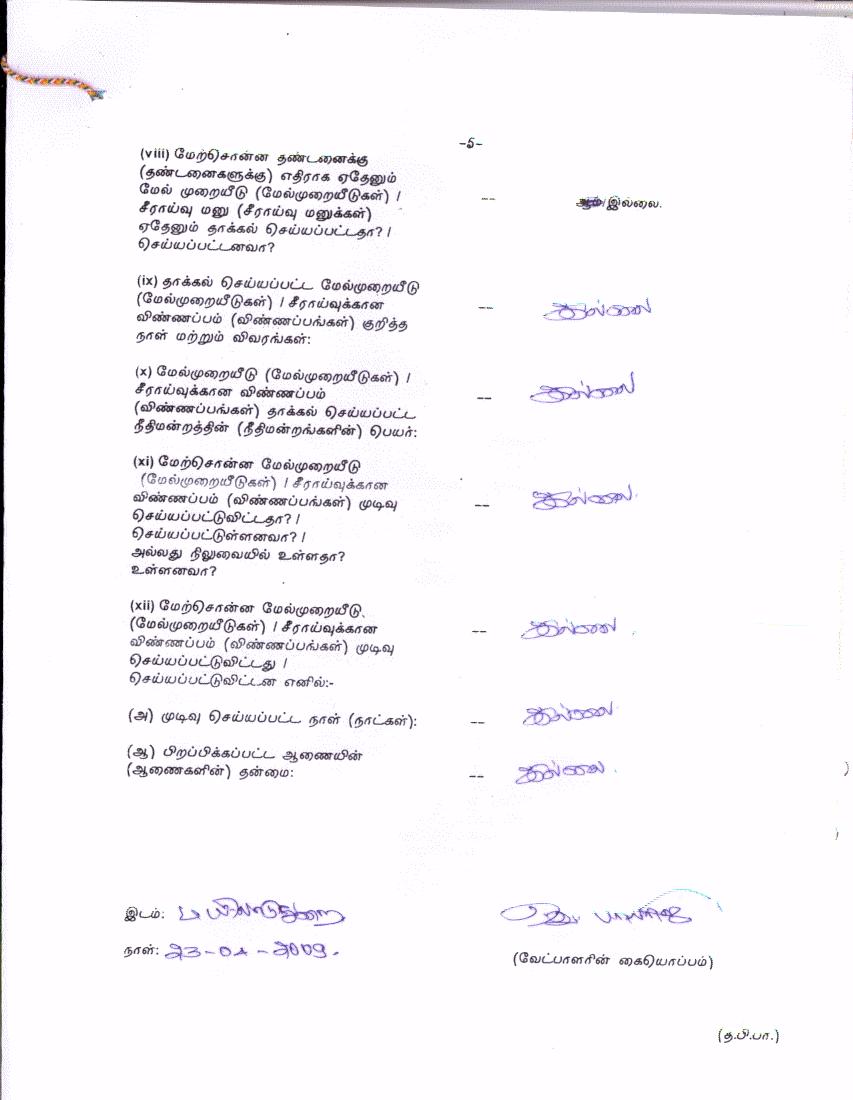 -5-
(viii) மேற்சொன்ன தண்டனைக்கு
(தண்டனைகளுக்கு) எதிராக ஏதேனும்
மேல் முறையீடு (மேல்முறையீடுகள்) / -- ஆம்/இல்லை.
சீராய்வு மனு (சீராய்வு மனுக்கள்)
ஏதேனும் தாக்கல் செய்யப்பட்டதா? /
செய்யப்பட்டனவா?
(ix) தாக்கல் செய்யப்பட்ட மேல்முறையீடு
(மேல்முறையீடுகள்) / சீராய்வுக்கான -- இல்லை
விண்ணப்பம் (விண்ணப்பங்கள்) குறித்த
நாள் மற்றும் விவரங்கள்:
(x) மேல்முறையீடு (மேல்முறையீடுகள்) /
சீராய்வுக்கான விண்ணப்பம் -- இல்லை
(விண்ணப்பங்கள்) தாக்கல் செய்யப்பட்ட
நீதிமன்றத்தின் (நீதிமன்றங்களின்) பெயர்:
(xi) மேற்சொன்ன மேல்முறையீடு
(மேல்முறையீடுகள்) / சீராய்வுக்கான
விண்ணப்பம் (விண்ணப்பங்கள்) முடிவு -- இல்லை.
செய்யப்பட்டுவிட்டதா? /
செய்யப்பட்டுள்ளனவா? /
அல்லது நிலுவையில் உள்ளதா?
உள்ளனவா?
(xii) மேற்சொன்ன மேல்முறையீடு
(மேல்முறையீடுகள்) / சீராய்வுக்கான -- இல்லை.
விண்ணப்பம் (விண்ணப்பங்கள்) முடிவு
செய்யப்பட்டுவிட்டது /
செய்யப்பட்டுவிட்டன எனில்:-
(அ) முடிவு செய்யப்பட்ட நாள் (நாட்கள்): -- இல்லை
(ஆ) பிறப்பிக்கப்பட்ட ஆணையின்
(ஆணைகளின்) தன்மை: -- இல்லை.
இடம்: மயிலாடுதுறை
நாள்: 23-04-2009.
(வேட்பாளரின் கையொப்பம்)
(த.பி.பா.)